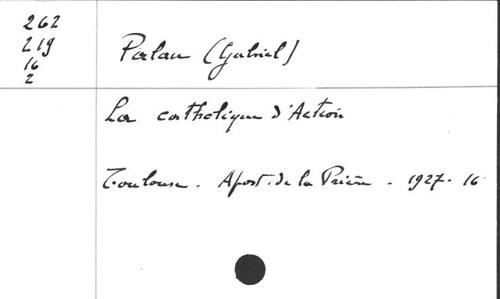 262
219
16
2
Palau (Gabriel)
La catholique d'Action
Toulouse. Apost. de la Prière. 1927. 16